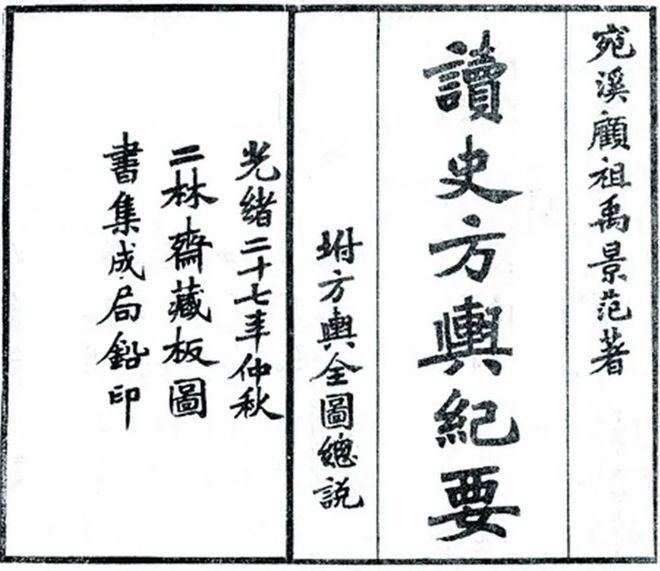 宛溪顧祖禹景范著
讀史方輿紀要
坿方輿全圖總說
光緒二十七年仲秋
二林齋藏板圖
書集成局鉛印